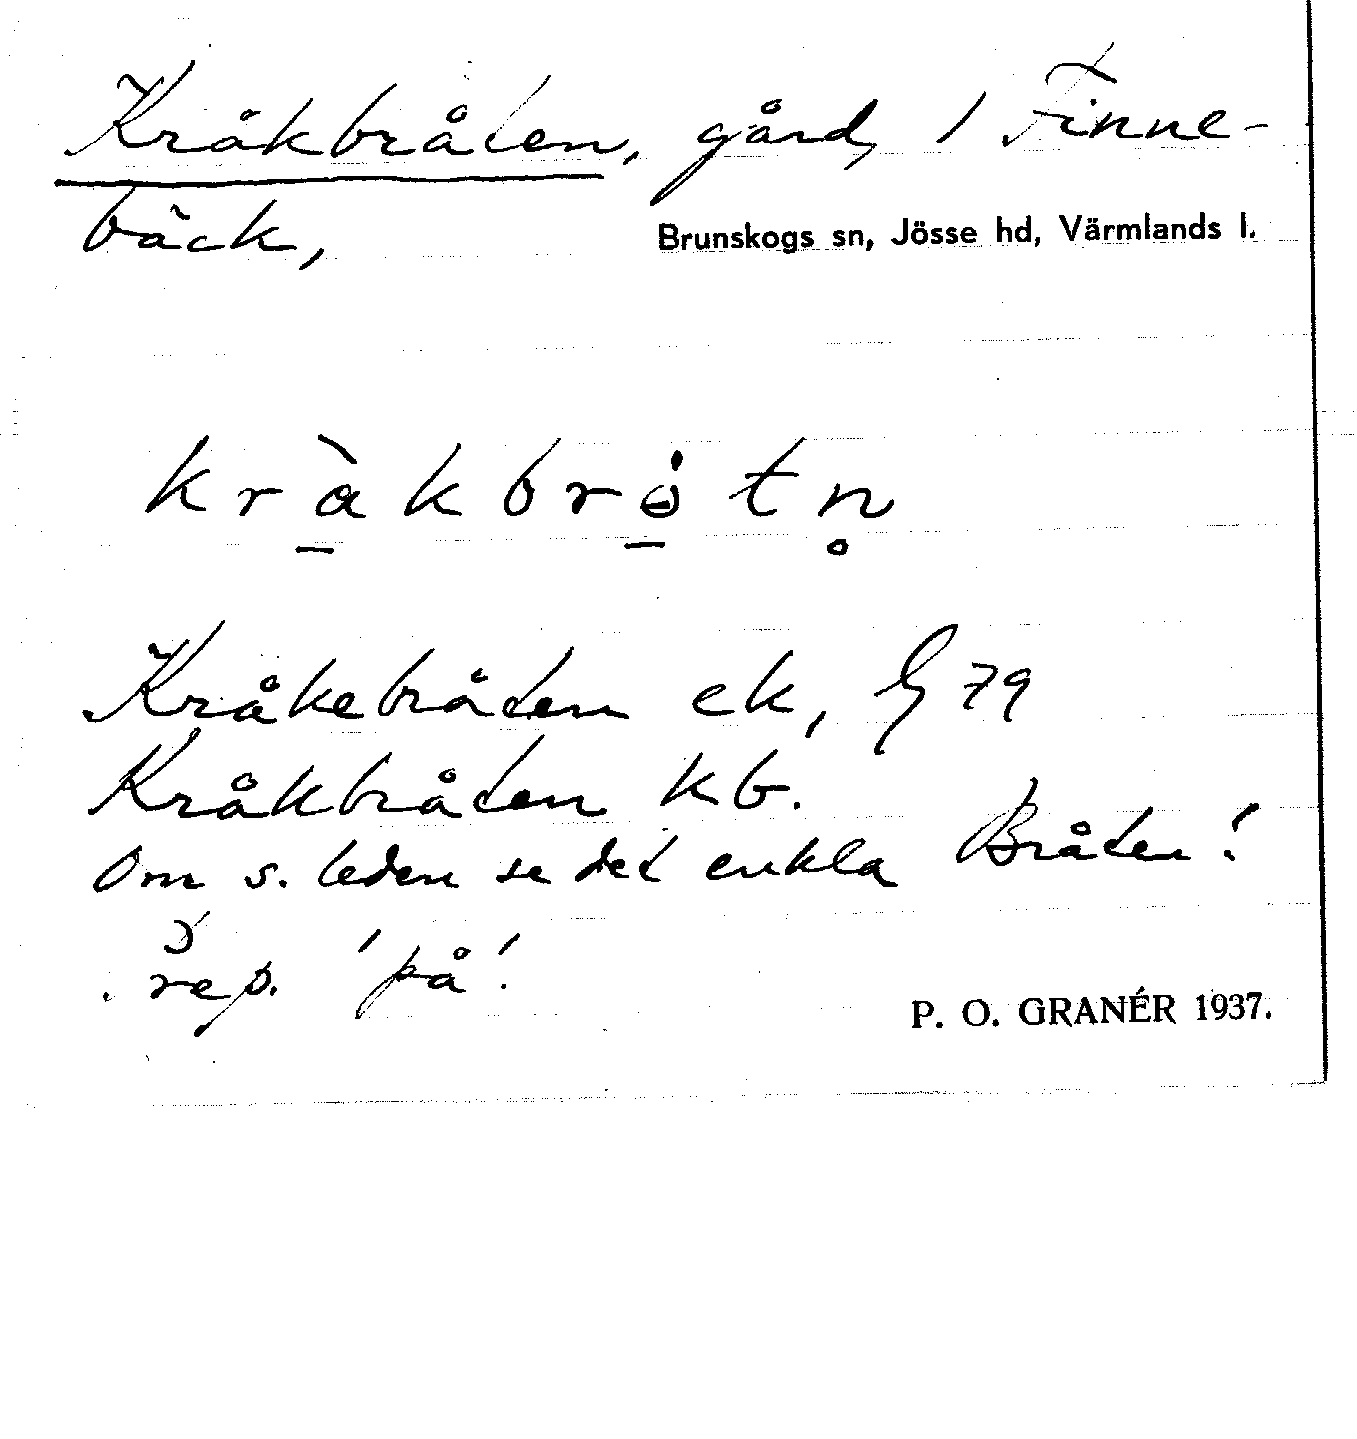 Kråkbråten, gård, 1 Finne-
bäck,
Brunskogs sn, Jösse hd, Värmlands l.
kràkbrɵ̇tn̥
Kråkebråten ek, G 79
Kråkbråten kb.
Om s. leden se det enkla Bråten!
rep. 'på'.
P. O. GRANÉR 1937.